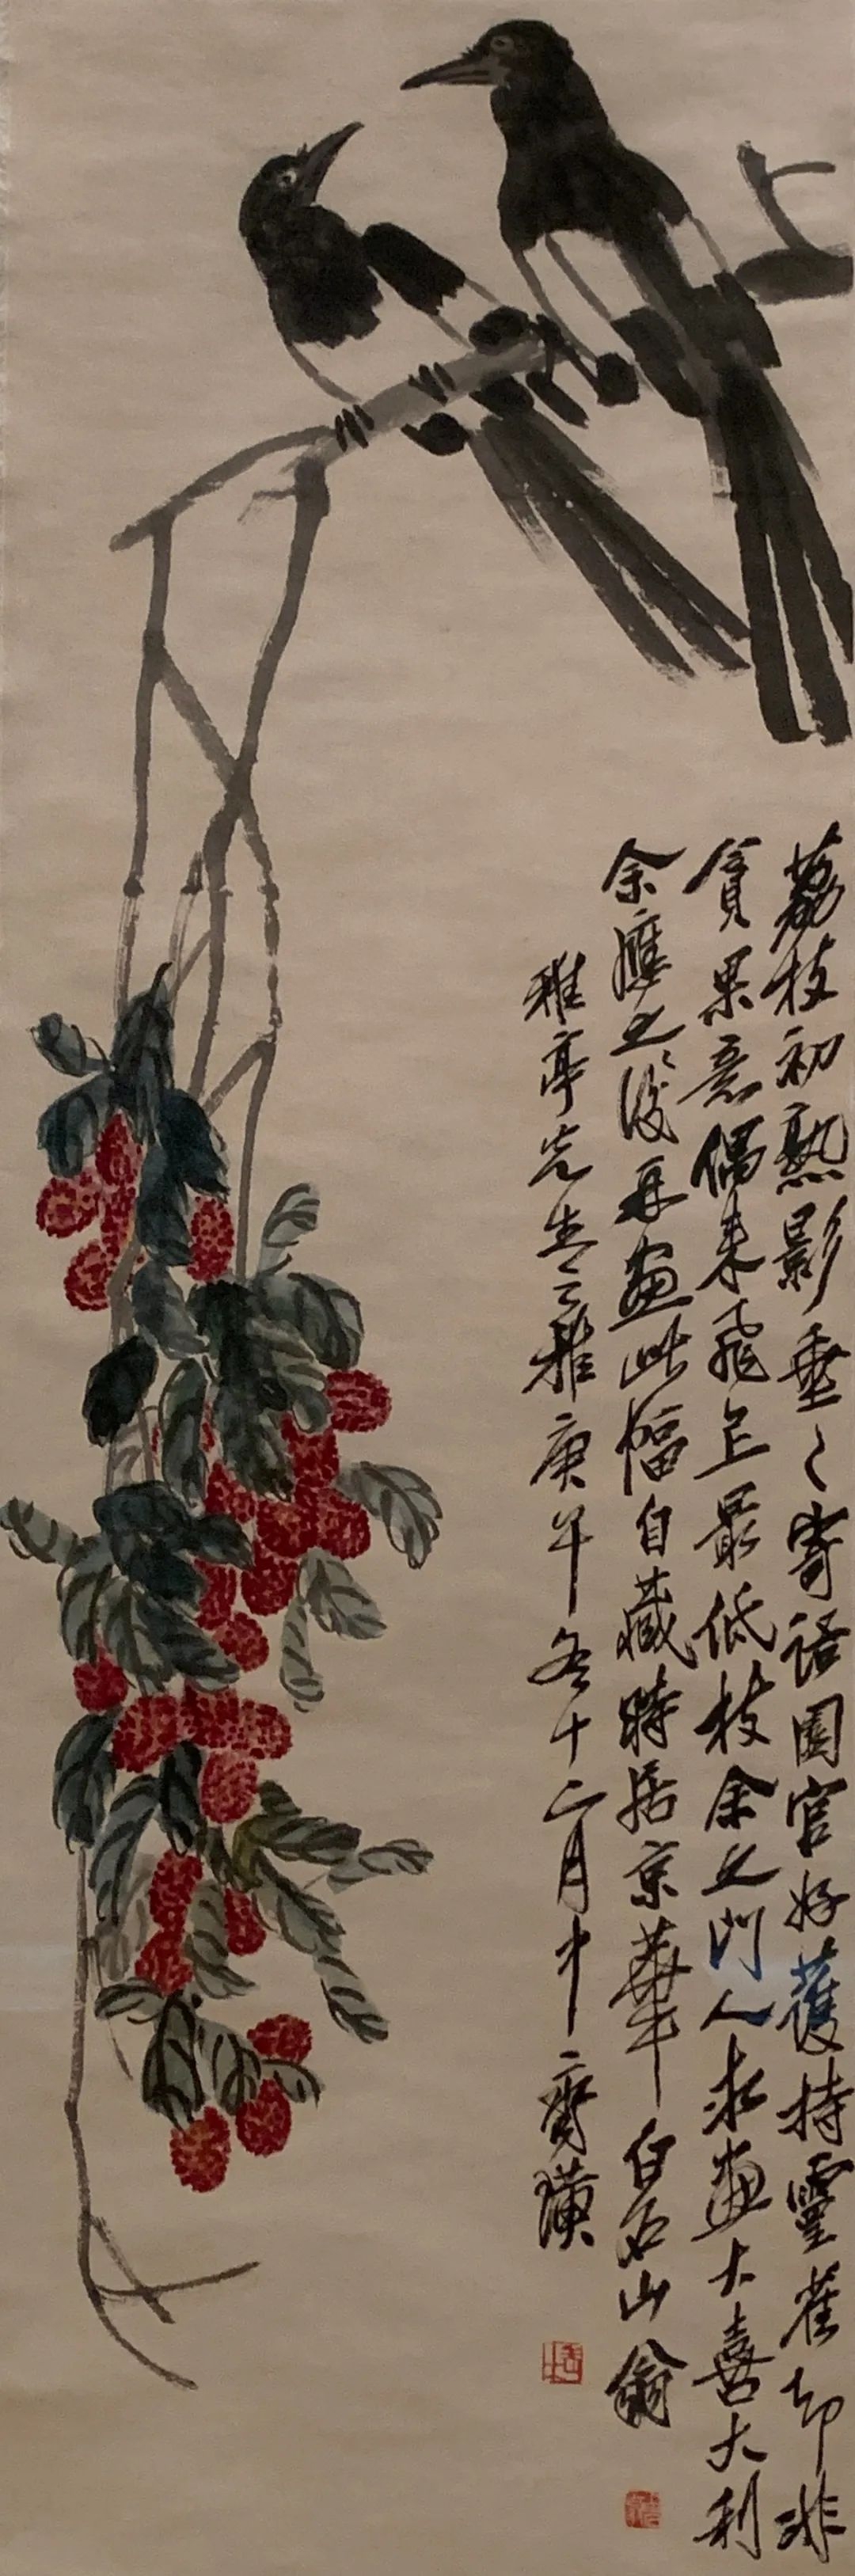 荔枝初熟影垂々寄語園官好護持靈雀却非
貪果意偶來飛上最低枝余之門人求畫大喜大利
余應之々後再畫此幅自藏時居京華白石山翁
雅亭先生之雅庚午冬十二月中齊璜